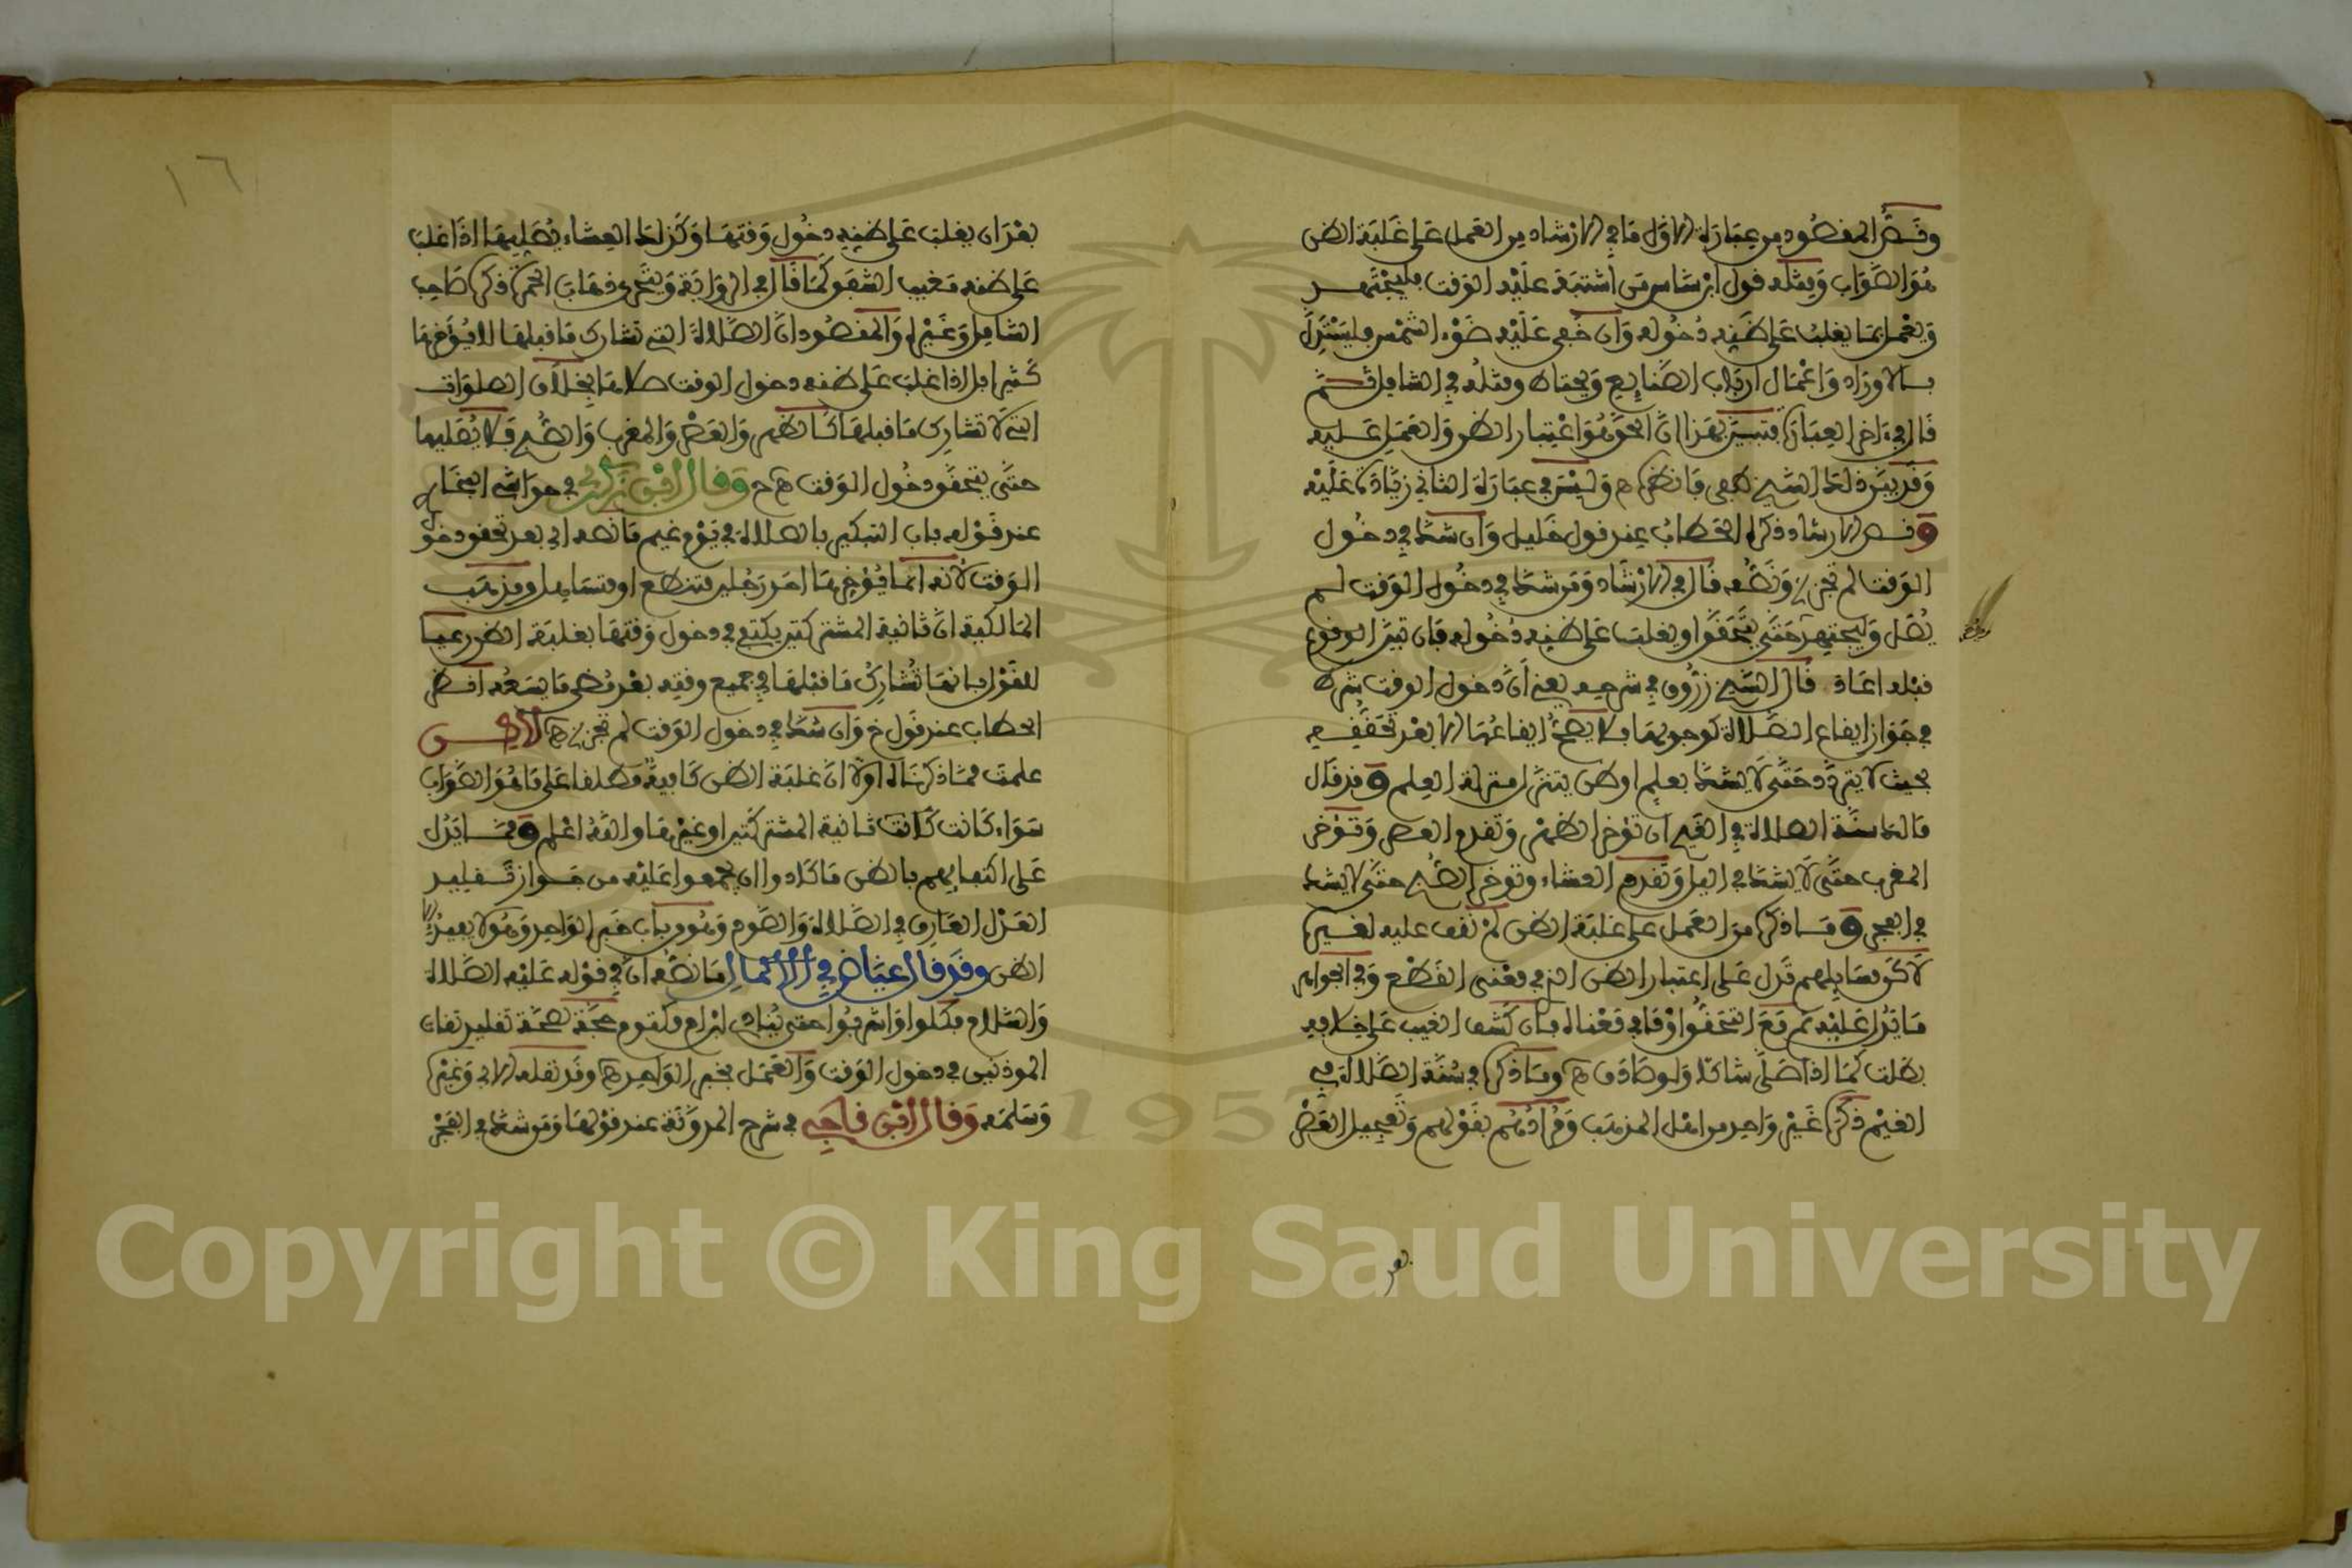 ونص المقصود من عبارة الاول ما في الارشاد من العمل على غلبة الظن
هو الصواب ومثله قول ابن شاس من اشتبه عليه الوقت فليجتهد
ويعمل بما يغلب على ظنه دخوله وان خفي عليه ضوء الشمس فليستدل
بالاوراد واعمال ارباب الصنايع ويحتاط ومثله في الشامل ثم
قال في ءاخر العبارة فتبين بهذا ان الحق هو اعتبار الظن والعمل عليه
وقد بين ذلك الشيخ مصطفى فانظره ه وليس في عبارة الثاني زيادة عليه
ونص الارشاد ذكره الحطاب عند قول خليل وان شك في دخول
الوقت لم تجز ونصه قال في الارشاد ومن شك في دخول الوقت لم
يصل وليجتهد حتى يتحقق او يغلب على ظنه دخوله فان تبين الوقوع
قبله اعاد قال الشيخ زروق في شرحه يعني ان دخول الوقت شرط
في جواز ايقاع الصلاة كوجوبها فلا يصح ايقاعها الا بعد تحققه
بحيث لا يتردد حتى لا يشك بعلم او ظن يتنزل منزلة العلم وقد قال
مالك سنة الصلاة في الغيم ان تؤخر الظهر وتقدم العصر وتؤخر
المغرب حتى لا يشك في الليل وتقدم العشاء وتؤخر الصبح حتى لا يشك
في الفجر وما ذكره من العمل على غلبة الظن لم نقف عليه لغيره
لاكن مسايلهم تدل على اعتبار الظن الذي في معنى القطع وفي الجواهر
ما يدل عليه ثم مع التحقق او ما في معناه فان كشف الغيب على خلافه
بطلت كما اذا صلى شاكا ولو صادف ه وما ذكره في سنة الصلاة في
الغيم ذكره غير واحد من اهل المذهب ومرادهم بقولهم وتعجيل العصر
بعد
١٦
بعد ان يغلب على ظنه دخول وقتها وكذلك العشاء يصليها اذا غلب
على ظنه مغيب الشفق كما قال في الرواية ويتحرى ذهاب الحمرة ذكره صاحب
الشامل وغيره والمقصود ان الصلاة التي تشارك ما قبلها لا يؤخرها
كثيرا بل اذا غلب على ظنه دخول الوقت صلاها بخلاف الصلوات
التي لا تشارك ما قبلها كالظهر والعصر والمغرب والصبح فلا يصليها
حتى يتحقق دخول الوقت ه ح وقال ابن زكري في حواشي البخاري
عند قوله باب التبكير بالصلاة في يوم غيم ما نصه اي بعد تحقق دخول
الوقت لانه انما يؤخرها احد رجلين متنطع او متساهل ومذهب
المالكية ان ثانية المشتركتين يكتفى في دخول وقتها بغلبة الظن رعيا
للقول بانها تشارك ما قبلها في جميع وقته بعد مضي ما يسعه انظر
الحطاب عند قول خ وان شك في دخول الوقت لم تجز ه لاكن
علمت مما ذكرناه اولا ان غلبة الظن كافية مطلقا على ما هو الصواب
سواء كانت ثانية المشتركتين او غيرها والله اعلم ومما يدل
على اكتفايهم بالظن ما كادوا ان يجمعوا عليه من جواز تقليد
العدل العارف في الصلاة والصوم وهو من باب خبر الواحد وهو لا يفيد الا
الظن وقد قال عياض في الاكمال ما نصه ان في قوله عليه الصلاة
والسلام فكلوا واشربوا حتى ينادي ابن ام مكتوم حجة لصحة تقليد ثقات
الموذنين في دخول الوقت والعمل بخبر الواحد ه وقد نقله الابي وغيره
وسلمه وقال ابن ناجي في شرح المدونة عند قولها ومن شك في الفجر